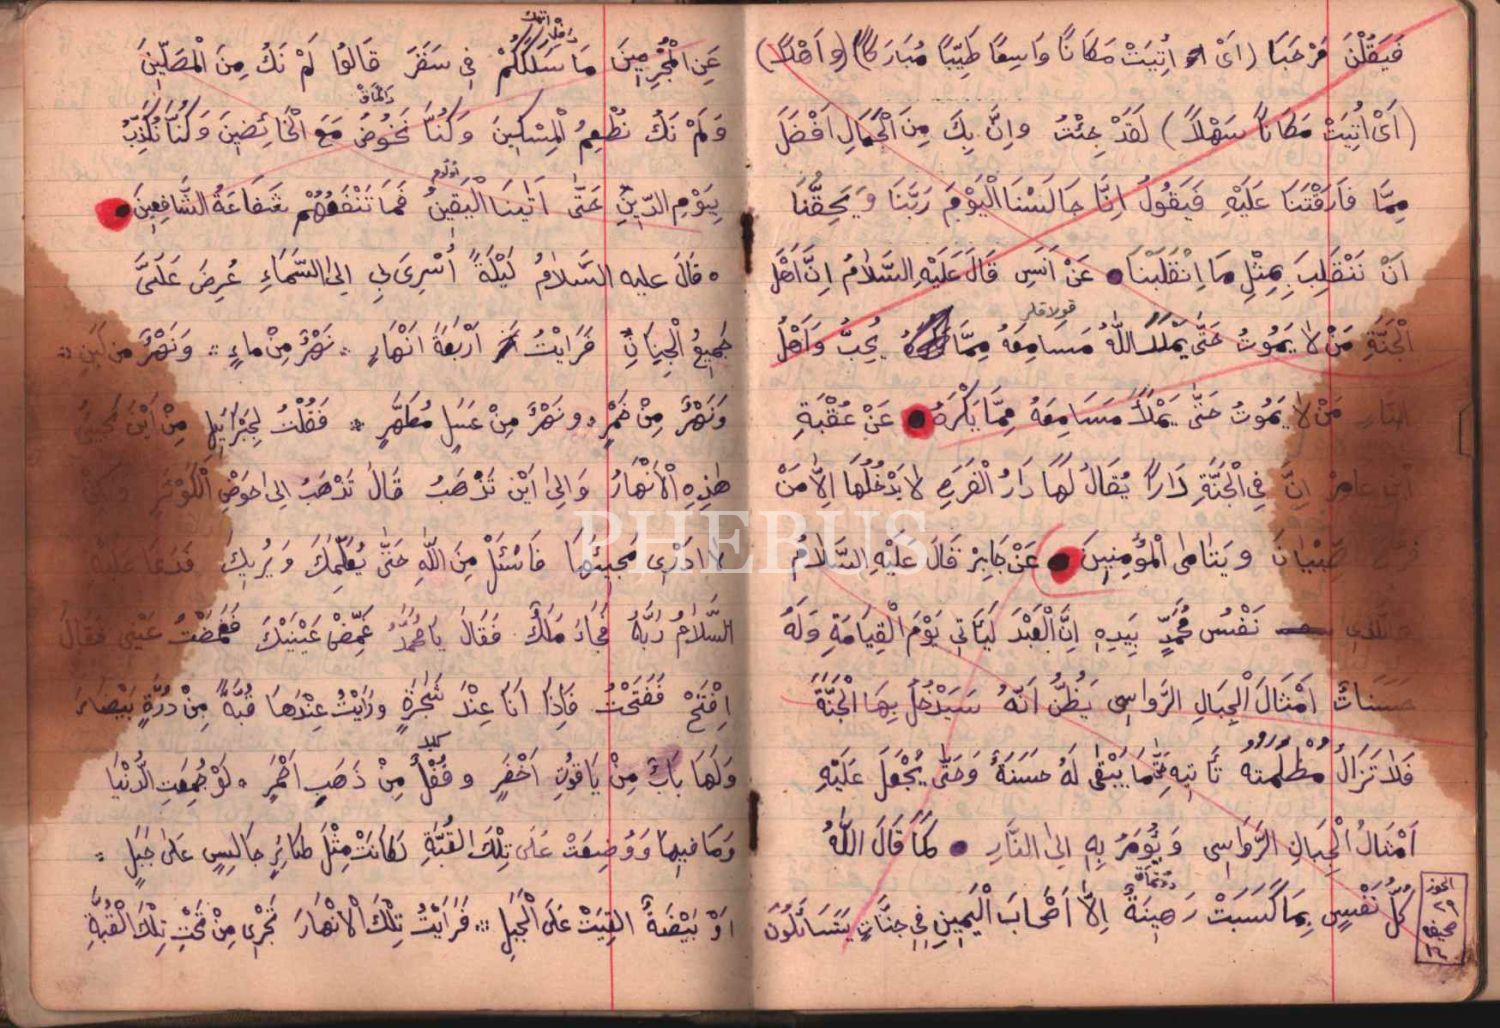 فَيَقُلْنَ مَرْحَبَا (اَىْ اُتِيَتْ مَكَانًا وَاسِعًا طَيِّبًا مُبَارَكًا) (وَاَهْلًا)
(اَىْ اُتِيَتْ مَكَانًا سَهْلًا) لَقَدْ جِئْتُ وَاِنَّ بِكَ مِنَ الْجَمَالِ اَفْضَلَ
مِمَّا فَارَقْتَنَا عَلَيْهِ فَيَقُولُ اِنَّا جَالَسْنَا الْيَوْمَ رَبَّنَا وَيَحِقُّنَا
اَنْ نَنْقَلِبَ بِمِثْلِ مَا اِنْقَلَبْنَا عَنْ اَنَسٍ قَالَ عَلَيْهِ السَّلَامُ اِنَّ اَهْلَ
الْجَنَّةِ مَنْ لَا يَمُوتُ حَتَّى يَمْلَأَ اللّٰهُ مَسَامِعَهُ مِمَّا يُحِبُّ وَاَهْلُ
النَّارِ مَنْ لَا يَمُوتُ حَتَّى يَمْلَأَ مَسَامِعَهُ مِمَّا يَكْرَهُ عَنْ عُقْبَةِ
ابْنِ عَامِرٍ اِنَّ فِى الْجَنَّةِ دَارًا يُقَالُ لَهَا دَارُ الْفَرَحِ لَا يَدْخُلُهَا اِلَّا مَنْ
صِبْيَانَ وَيَتَامَى الْمُؤْمِنِينَ عَنْ جَابِرٍ قَالَ عَلَيْهِ السَّلَامُ
وَالَّذِى نَفْسُ مُحَمَّدٍ بِيَدِهِ اِنَّ الْعَبْدَ لَيَأْتِى يَوْمَ الْقِيَامَةِ وَلَهُ
حَسَنَاتٌ اَمْثَالَ الْجِبَالِ الرَّوَاسِى يَظُنُّ اَنَّهُ سَيَدْخُلُ بِهَا الْجَنَّةَ
فَلَا تَزَالُ مَظْلَمَتُهُ تَأْتِيهِ حَتَّى مَا يَبْقَى لَهُ حَسَنَةٌ وَحَتَّى يُجْعَلَ عَلَيْهِ
اَمْثَالُ الْجِبَالِ الرَّوَاسِى وَيُؤْمَرُ بِهِ اِلَى النَّارِ كَمَا قَالَ اللّٰهُ
كُلُّ نَفْسٍ بِمَا كَسَبَتْ رَهِينَةٌ اِلَّا اَصْحَابَ الْيَمِينِ فِى جَنَّاتٍ يَتَسَائَلُونَ
٢٩
صحيفه
عَنِ الْمُجْرِمِينَ مَا سَلَكَكُمْ فِى سَقَرَ قَالُوا لَمْ نَكُ مِنَ الْمُصَلِّينَ
وَلَمْ نَكُ نُطْعِمُ الْمِسْكِينَ وَكُنَّا نَخُوضُ مَعَ الْخَائِضِينَ وَكُنَّا نُكَذِّبُ
بِيَوْمِ الدِّينِ حَتَّى اَتٰينَا الْيَقِينُ فَمَا تَنْفَعُهُمْ شَفَاعَةُ الشَّافِعِينَ
قَالَ عليه السَّلَامُ لَيْلَةً اُسْرِىَ بِى اِلَى السَّمَاءِ عُرِضَ عَلَىَّ
جَمِيعُ الْجِنَانِ فَرَاَيْتُ اَرْبَعَةَ اَنْهَارٍ نَهْرٌ مِنْ مَاءٍ وَنَهْرٌ مِنْ لَبَنٍ
وَنَهْرٌ مِنْ خَمْرٍ وَنَهْرٌ مِنْ عَسَلٍ مُطَهَّرٍ فَقُلْتُ لِجَبْرَائِيلَ مِنْ اَيْنَ تَجِيئُ
هٰذِهِ الْاَنْهَارُ وَاِلٰى اَيْنَ تَذْهَبُ قَالَ تَذْهَبُ اِلٰى حَوْضِ الْكَوْثَرِ
لَا اَدْرِى مَجِيئُهَا فَاسْئَلْ مِنَ اللّٰهِ حَتَّى يُعَلِّمَكَ وَيُرِيكَ فَدَعَا عَلَيْهِ
السَّلَامُ رَبَّهُ فَجَاءَ مَلَكٌ فَقَالَ يَا مُحَمَّدُ غَمِّضْ عَيْنَيْكَ فَغَمَّضْتُ عَيْنَىَّ فَقَالَ
اِفْتَحْ فَفَتَحْتُ فَاِذَا اَنَا عِنْدَ شَجَرَةٍ وَرَاَيْتُ عِنْدَهَا قُبَّةً مِنْ دُرَّةٍ بَيْضَاءَ
وَلَهَا بَابٌ مِنْ يَاقُوتٍ اَخْضَرٍ وَقُفْلٌ مِنْ ذَهَبٍ اَحْمَرٍ لَوْ جُمِعَتِ الدُّنْيَا
وَمَا فِيهَا وَوُضِعَتْ عَلَى تِلْكَ الْقُبَّةِ لَكَانَتْ مِثْلَ طَائِرٍ جَالِسٍ عَلَى جَبَلٍ
اَوْ بَيْضَةً اُلْقِيَتْ عَلَى الْجَبَلِ فَرَاَيْتُ تِلْكَ الْاَنْهَارَ تَجْرِى مِنْ تَحْتِ تِلْكَ الْقُبَّةِ
PHEBUS